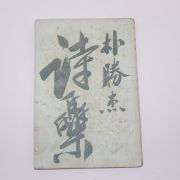 朴勝杰
詩集